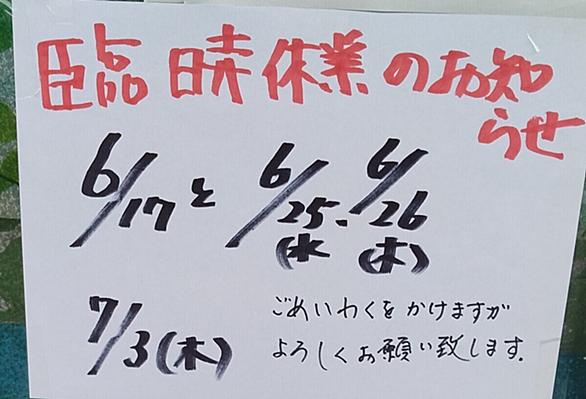 臨時休業のお知
らせ
6/17と 6/25(水 . 6/26(木)
7/3(木)
ごめいわくをかけますが
よろしくお願い致します.